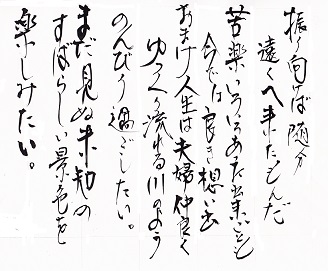 振り向けば随分
遠くへ来たもんだ
苦楽いろいろあった出来ごとも
今では良き想い出
おまけ人生は夫婦仲良く
ゆっくり流れる川のよう
のんびり過ごしたい。
まだ見ぬ未知の
すばらしい景色を
楽しみたい。